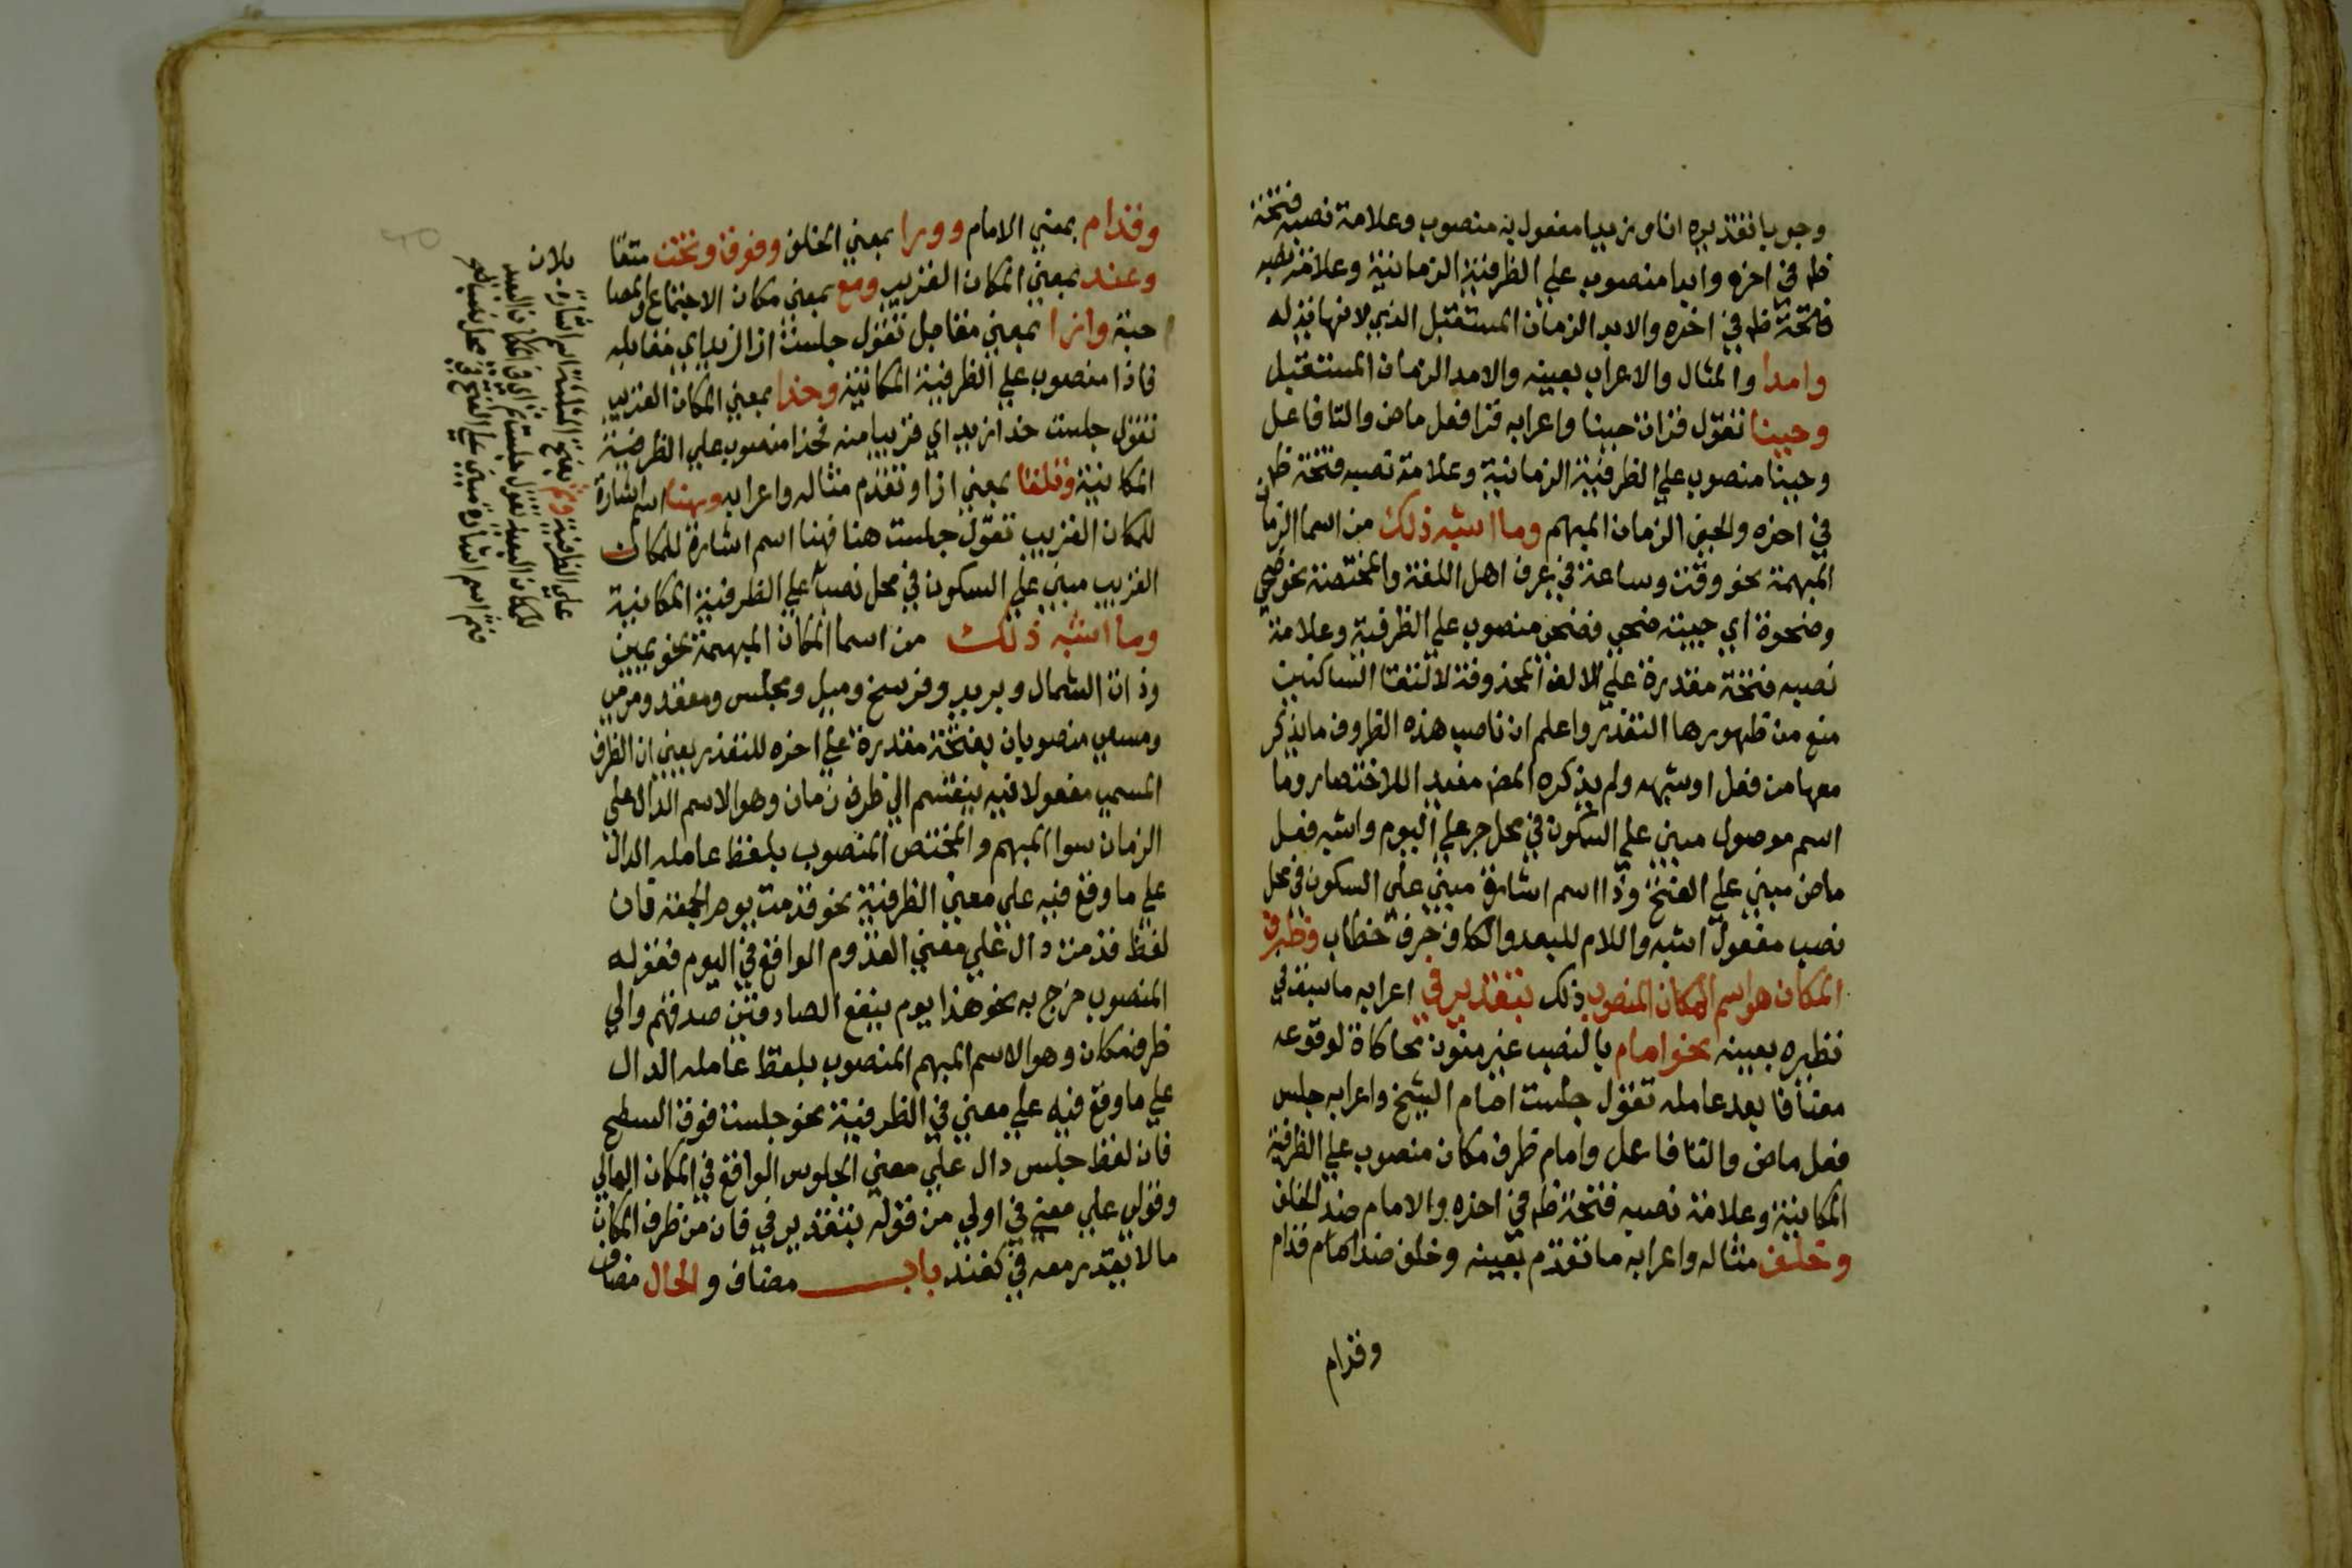 وجوبا تقديره انا وزيدا مفعول به منصوب وعلامة نصبه فتحة
ظـ في اخره وابدا منصوب علي الظرفية الزمانية وعلامة نصبه
فتحة ظـ في اخره والابد الزمان المستقبل الذي لا نهاية له
وامدا والمثال والاعراب بعينه والامد الزمان المستقبل
وحينا تقول قرات حينا واعرابه قرا فعل ماض والتا فاعل
وحينا منصوب علي الظرفية الزمانية وعلامة نصبه فتحة ظـ
في اخره والحين الزمان المبهم وما اشبه ذلك من اسما الزمان
المبهمة نحو وقت وساعة في عرف اهل اللغة والمختصة نحو ضحي
وضحوة اي جيته ضحي فضحي منصوب علي الظرفية وعلامة
نصبه فتحة مقدرة علي الالف المحذوفة لالتقا الساكنين
منع من ظهورها التقذر واعلم ان ناصب هذه الظروف ما يذكر
معها من فعل او شبهه ولم يذكره المص مفيد اللاختصار وما
اسم موصول مبني علي السكون في محل جر علي اليوم واشبه فعل
ماض مبني علي الفتح وذا اسم اشارة مبني علي السكون في محل
نصب مفعول اشبه واللام للبعد والكاف حرف خطاب وظرف
المكان هو اسم المكان المنصوب ذلك بتقدير في اعرابه ما سبق في
نظيره بعينه نحو امام بالنصب غير منون محاكاة لوقوعه
مضافا بعد عامله تقول جلست امام الشيخ واعرابه جلس
فعل ماض والتا فاعل وامام ظرف مكان منصوب علي الظرفية
المكانية وعلامة نصبه فتحة ظـ في اخره والامام ضد الخلف
وخلف مثاله واعرابه ما تقدم بعينه وخلف ضد امام قدام
وقدام
وقدام بمعني الامام وورا بمعني الخلف وفوق وتحت متقا
وعند بمعني المكان القريب ومع بمعني مكان الاجتماع والمصا
حبة وازا بمعني مقابل تقول جلست ازا زيد اي مقابله
فازا منصوب علي الظرفية المكانية وحذا بمعني المكان القريب
تقول جلست حذا زيد اي قريبا منه فحذا منصوب علي الظرفية
المكانية وتلقا بمعني ازا وتقدم مثاله واعرابه وهنا اسم اشارة
للمكان القريب تقول جلست هنا فهنا اسم اشارة للمكان
القريب مبني علي السكون في محل نصب علي الظرفية المكانية
وما اشبه ذلك من اسما المكان المبهمة نحو يمين
وذات الشمال وبريد وفرسخ وميل ومجلس ومقعد ومرمي
ومسعي منصوبان بفتحة مقدرة علي اخره للتقذر يعني ان الظرف
المسمي مفعولا فيه ينقسم الي ظرف زمان وهو الاسم الدال علي
الزمان سوا المبهم والمختص المنصوب بلفظ عامله الدال
علي ما وقع فيه علي معني الظرفية نحو قدمت يوم الجمعة فان
لفظ قدمت دال علي معني القدوم الواقع في اليوم فقوله
المنصوب خرج به نحو هذا يوم ينفع الصادقين صدقهم والي
ظرف مكان وهو الاسم المبهم المنصوب بلفظ عامله الدال
علي ما وقع فيه علي معني في الظرفية نحو جلست فوق السطح
فان لفظ جلس دال علي معني الجلوس الواقع في المكان العالي
وقولي علي معني في اولي من قوله بتقدير في فان من ظرف المكان
ما لا يقدر معه في كعند باب مضاف والحال مضاف
علي الظرفية وثم بفتح المثلثة اسم اشارة
للمكان البعيد تقول جلست ثم اي في المكان البعيد
فثم اسم اشارة مبني علي الفتح في محل نصب